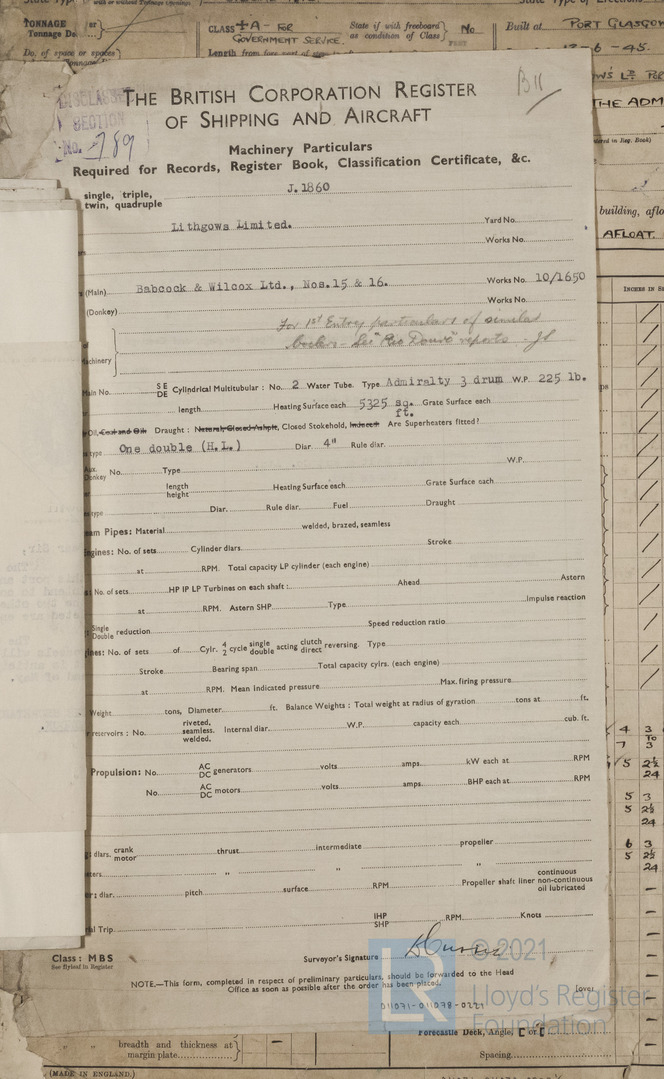 TONNAGE
Tonnage Do.
CLASS +A - FOR
GOVERNMENT SERVICE.
State if with freeboard
as condition of Class
No
Built at
PORT GLASGOW
Do. of space or spaces
-6-45.
THE BRITISH CORPORATION REGISTER
OF SHIPPING AND AIRCRAFT
B11
SECTION
No. 789
THE ADM
Machinery Particulars
Required for Records, Register Book, Classification Certificate, &c.
single, triple,
twin, quadruple
J.1860
building, aflo
AFLOAT.
Lithgows Limited.
Yard No.
Works No.
(Main) Babcock & Wilcox Ltd., Nos.15 & 16. Works No. 10/1650
(Donkey) Works No.
For 1st Entry particulars of similar
boilers - See "Rio Douro" reports.
achinery
ain No. S E
D E Cylindrical Multitubular : No. 2 Water Tube. Type Admiralty 3 drum W.P. 225 lb.
length Heating Surface each 5325 sq. ft. Grate Surface each
Oil, Coal and Oil Draught : Natural, Closed Ashpit, Closed Stokehold, Induced Are Superheaters fitted?
type One double (H.L.) Diar. 4" Rule diar.
Aux.
Donkey No. Type W.P.
length
height Heating Surface each Grate Surface each
type Diar. Rule diar. Fuel Draught
am Pipes: Material welded, brazed, seamless
gines: No. of sets Cylinder diars. Stroke
at RPM. Total capacity LP cylinder (each engine)
: No. of sets HP IP LP Turbines on each shaft : Ahead Astern
at RPM. Astern SHP Type Impulse reaction
Single
Double reduction Speed reduction ratio
ines: No. of sets of Cylr. 4
2 cycle single
double acting clutch
direct reversing. Type
Stroke Bearing span Total capacity cylrs. (each engine)
at RPM. Mean indicated pressure Max. firing pressure
Weight tons, Diameter ft. Balance Weights : Total weight at radius of gyration tons at ft.
reservoirs : No. riveted,
seamless.
welded. Internal diar. W.P. capacity each cub. ft.
Propulsion: No. AC
DC generators volts amps. kW each at RPM
No. AC
DC motors volts amps. BHP each at RPM
: diars. crank
motor thrust intermediate propeller
eters „ „ „
: diar. pitch surface RPM Propeller shaft liner continuous
non-continuous
oil lubricated
al Trip. IHP
SHP RPM. Knots
Class : MBS
See flyleaf in Register
Surveyor's Signature
NOTE.—This form, completed in respect of preliminary particulars, should be forwarded to the Head
Office as soon as possible after the order has been placed.
[over
011071-011078-0221
© 2021,
Lloyd's Register
Foundation
LR
INCHES IN S
4 3
TO
7 3
5 2½
24
5 3
5 2½
24
6 3
5 2½
24
Forecastle Deck, Angle, [ or [
„ „ breadth and thickness at
margin plate
Spacing
(MADE IN ENGLAND.)